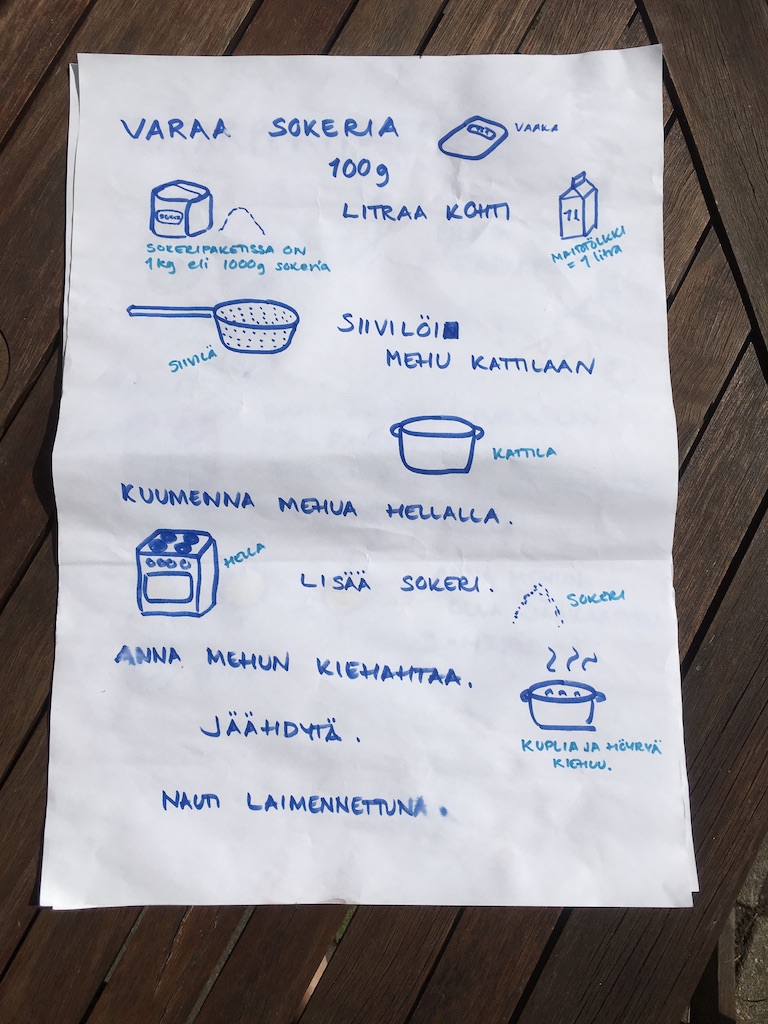 VARAA SOKERIA
VAAKA
100g
LITRAA KOHTI
1L
SOKERIPAKETISSA ON
1kg eli 1000g sokeria
MAITOTÖLKKI
= 1 litra
SIIVILÖI
MEHU KATTILAAN
SIIVILÄ
KATTILA
KUUMENNA MEHUA HELLALLA.
HELLA
LISÄÄ SOKERI.
SOKERI
ANNA MEHUN KIEHAHTAA.
JÄÄHDYTÄ.
KUPLIA JA HÖYRYÄ
KIEHUU.
NAUTI LAIMENNETTUNA.